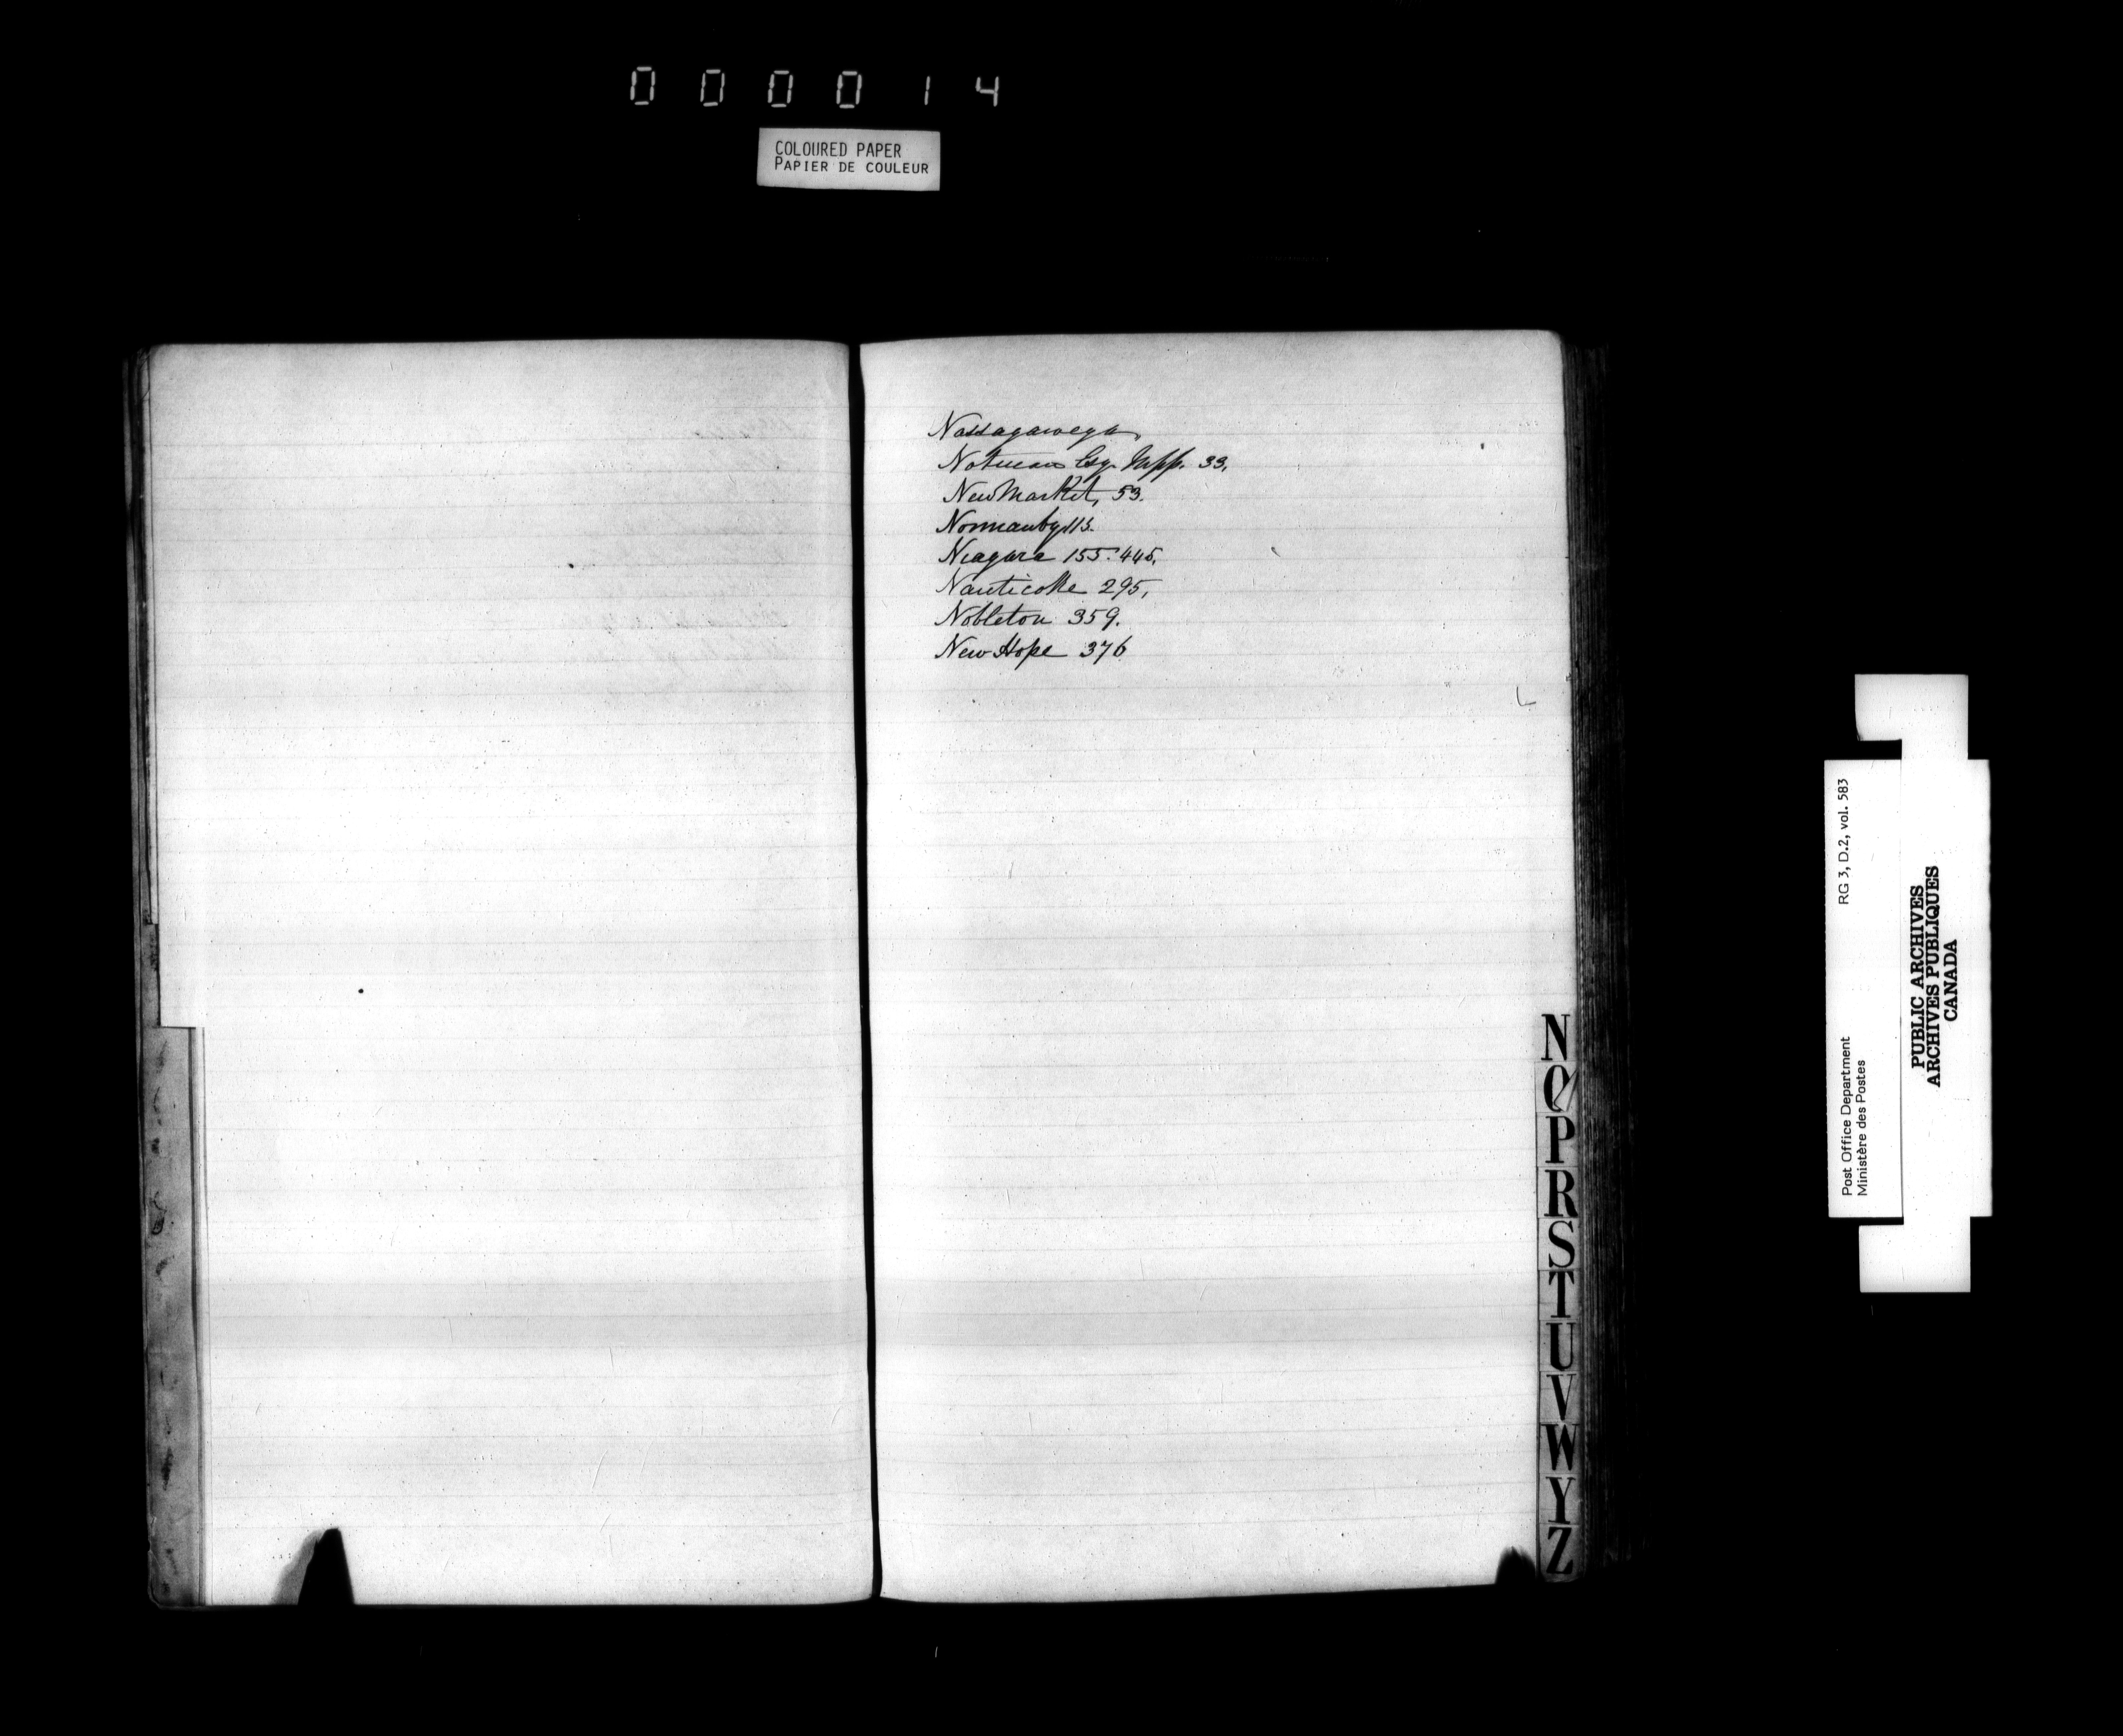 000014
COLOURED PAPER
PAPIER DE COULEUR
Nassagaweya
Notman Esq. Mpp. 33.
New Market, 53.
Normanby 113.
Niagara 155. 445.
Nanticoke 295,
Nobleton 359.
New Hope 376
N
O
P
R
S
T
U
V
W
Y
Z
RG 3, D.2, vol. 583
Post Office Department
Ministère des Postes
PUBLIC ARCHIVES
ARCHIVES PUBLIQUES
CANADA